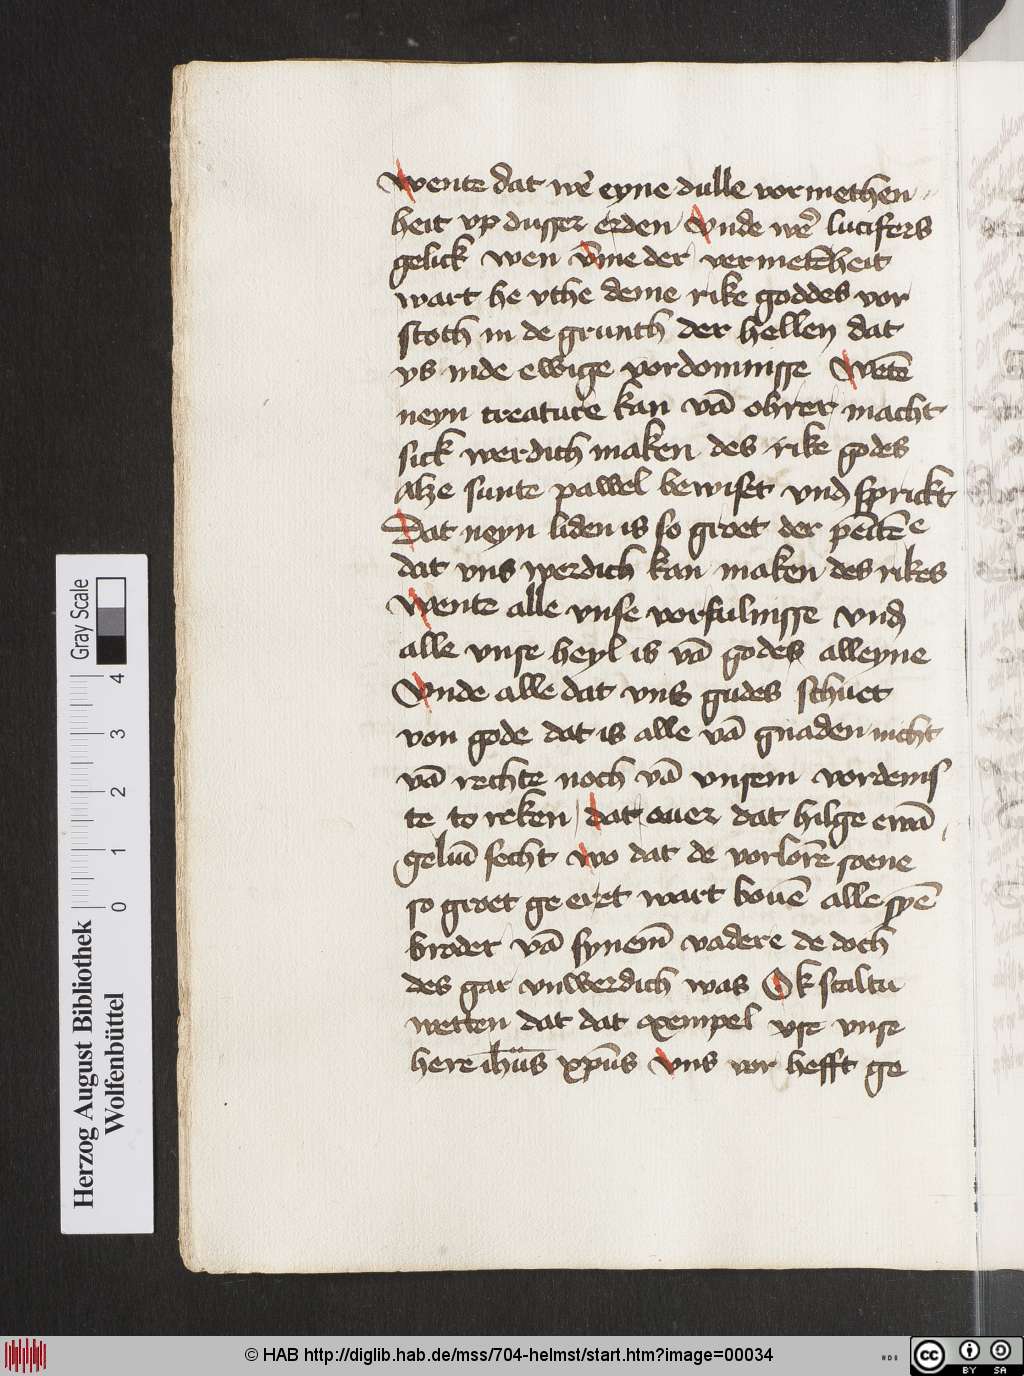 Wente dat we͛ eyne dulle vormethen
heit vp dusser erden Vnde we͛ lucifers
gelick wen v̄me der vermetēheit
wart he vthe deme rike goddes vor
stoth in de grunth der hellen dat
ys inde ewige vordomnisse Wētē
neyn creature kan vā ohrer macht
sick werdich maken des rike godes
Alze sunte pawel bewiset vnd sprickt
Dat neyn liden is so groet der pēitēe
dat vns werdich kan maken des rikes
Wente alle vnse vorfulnisse vnd
alle vnse heyl is vā godes alleyne
Vnde alle dat vns gudes schuet
von gode dat is alle vā gnaden nicht
vā rechte noch vā vnsem vordenis
te to reken dat ouer dat hilge ewā
geliū secht wo dat de vorlorē soene
so groet ge eret wart bouē alle syē
broder vā synem̄ vadere de doch
des gar vnwerdich was Ok scaltu
wetten dat dat exempel vse vnse
here ihūs xpūs vns vor hefft ge
Gray Scale
4
3
2
1
0
Herzog August Bibliothek
Wolfenbüttel
© HAB http://diglib.hab.de/mss/704-helmst/start.htm?image=00034
HAB
cc
BY SA